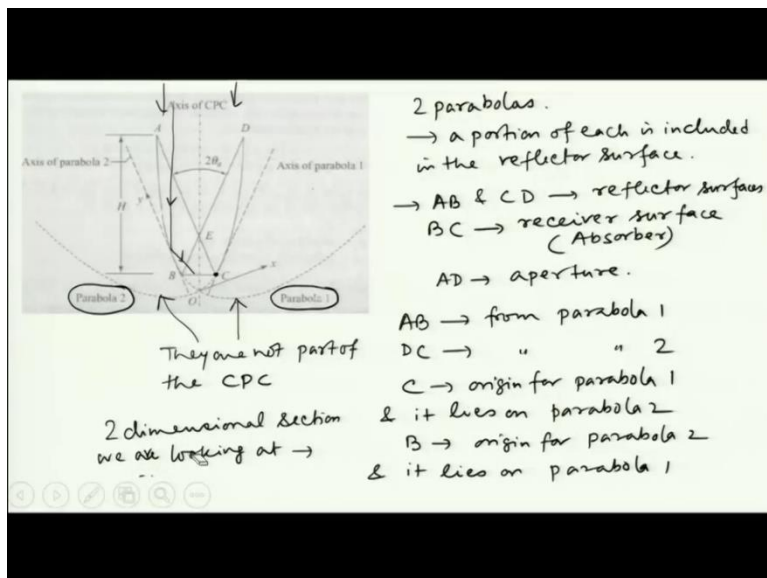 Axis of CPC
A
D
Axis of parabola 2
2θa
Axis of parabola 1
H
y
E
B
C
x
O
Parabola 2
Parabola 1
They are not part of
the CPC
2 dimensional section
we are looking at →
2 parabolas.
→ a portion of each is included
in the reflector surface.
→ AB & CD → reflector surfaces
BC → receiver surface
(Absorber)
AD → aperture.
AB → from parabola 1
DC → " " 2
C → origin for parabola 1
& it lies on parabola 2
B → origin for parabola 2
& it lies on parabola 1